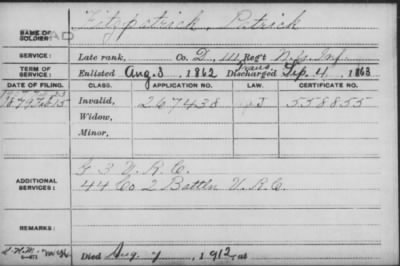 NAME OF SOLDIER: AD Fitzpatrick, Patrick
SERVICE: Late rank, Co. D, 111 Reg't N.Y. Inf.
TERM OF SERVICE: Enlisted Aug. 3, 1862 Trans. Discharged Sep. 4, 1863
DATE OF FILING. CLASS. APPLICATION NO. LAW. CERTIFICATE NO.
1879 Feb 15 Invalid, 267438 558855
Widow,
Minor,
ADDITIONAL SERVICES: G 3 V.R.C.
44 Co 2 Battln V.R.C.
REMARKS:
Died Aug. 7, 1912, at